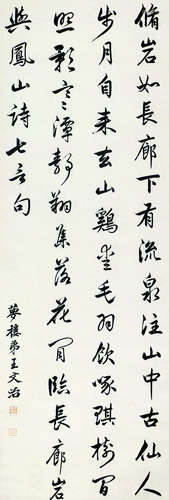 脩岩如長廊下有流泉注山中古仙人
步月自来去山鷄愛毛羽飲啄琪樹間
照影寒潭静翔集落花間臨長廊岩
與鳳山詩七言句
夢樓弟王文治